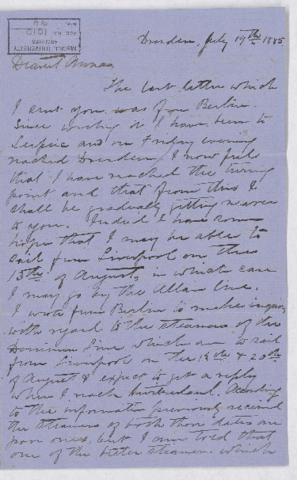 McGILL UNIVERSITY
ARCHIVES
ACC. NO. 1010
Dresden, July 19th 1885
Dearest Anna
The last letter which
I sent you was from Berlin.
Since writing it I have been to
Leipsic and on Friday evening
reached Dresden. I now feel
that I have reached the turning
point and that from this I
shall be gradually getting nearer
to you. Indeed I have some
hopes that I may be able to
sail from Liverpool on the
13th of August, in which case
I may go by the Allan line.
I wrote from Berlin to make inquiry
with regard to the steamers of the
Dominion Line which are to sail
from Liverpool on the & 20th
of August & expect to get a reply
when I reach Switzerland. According
to the information previously received
the steamers of both those dates are
poor ones, but I am told that
one of the better steamers which